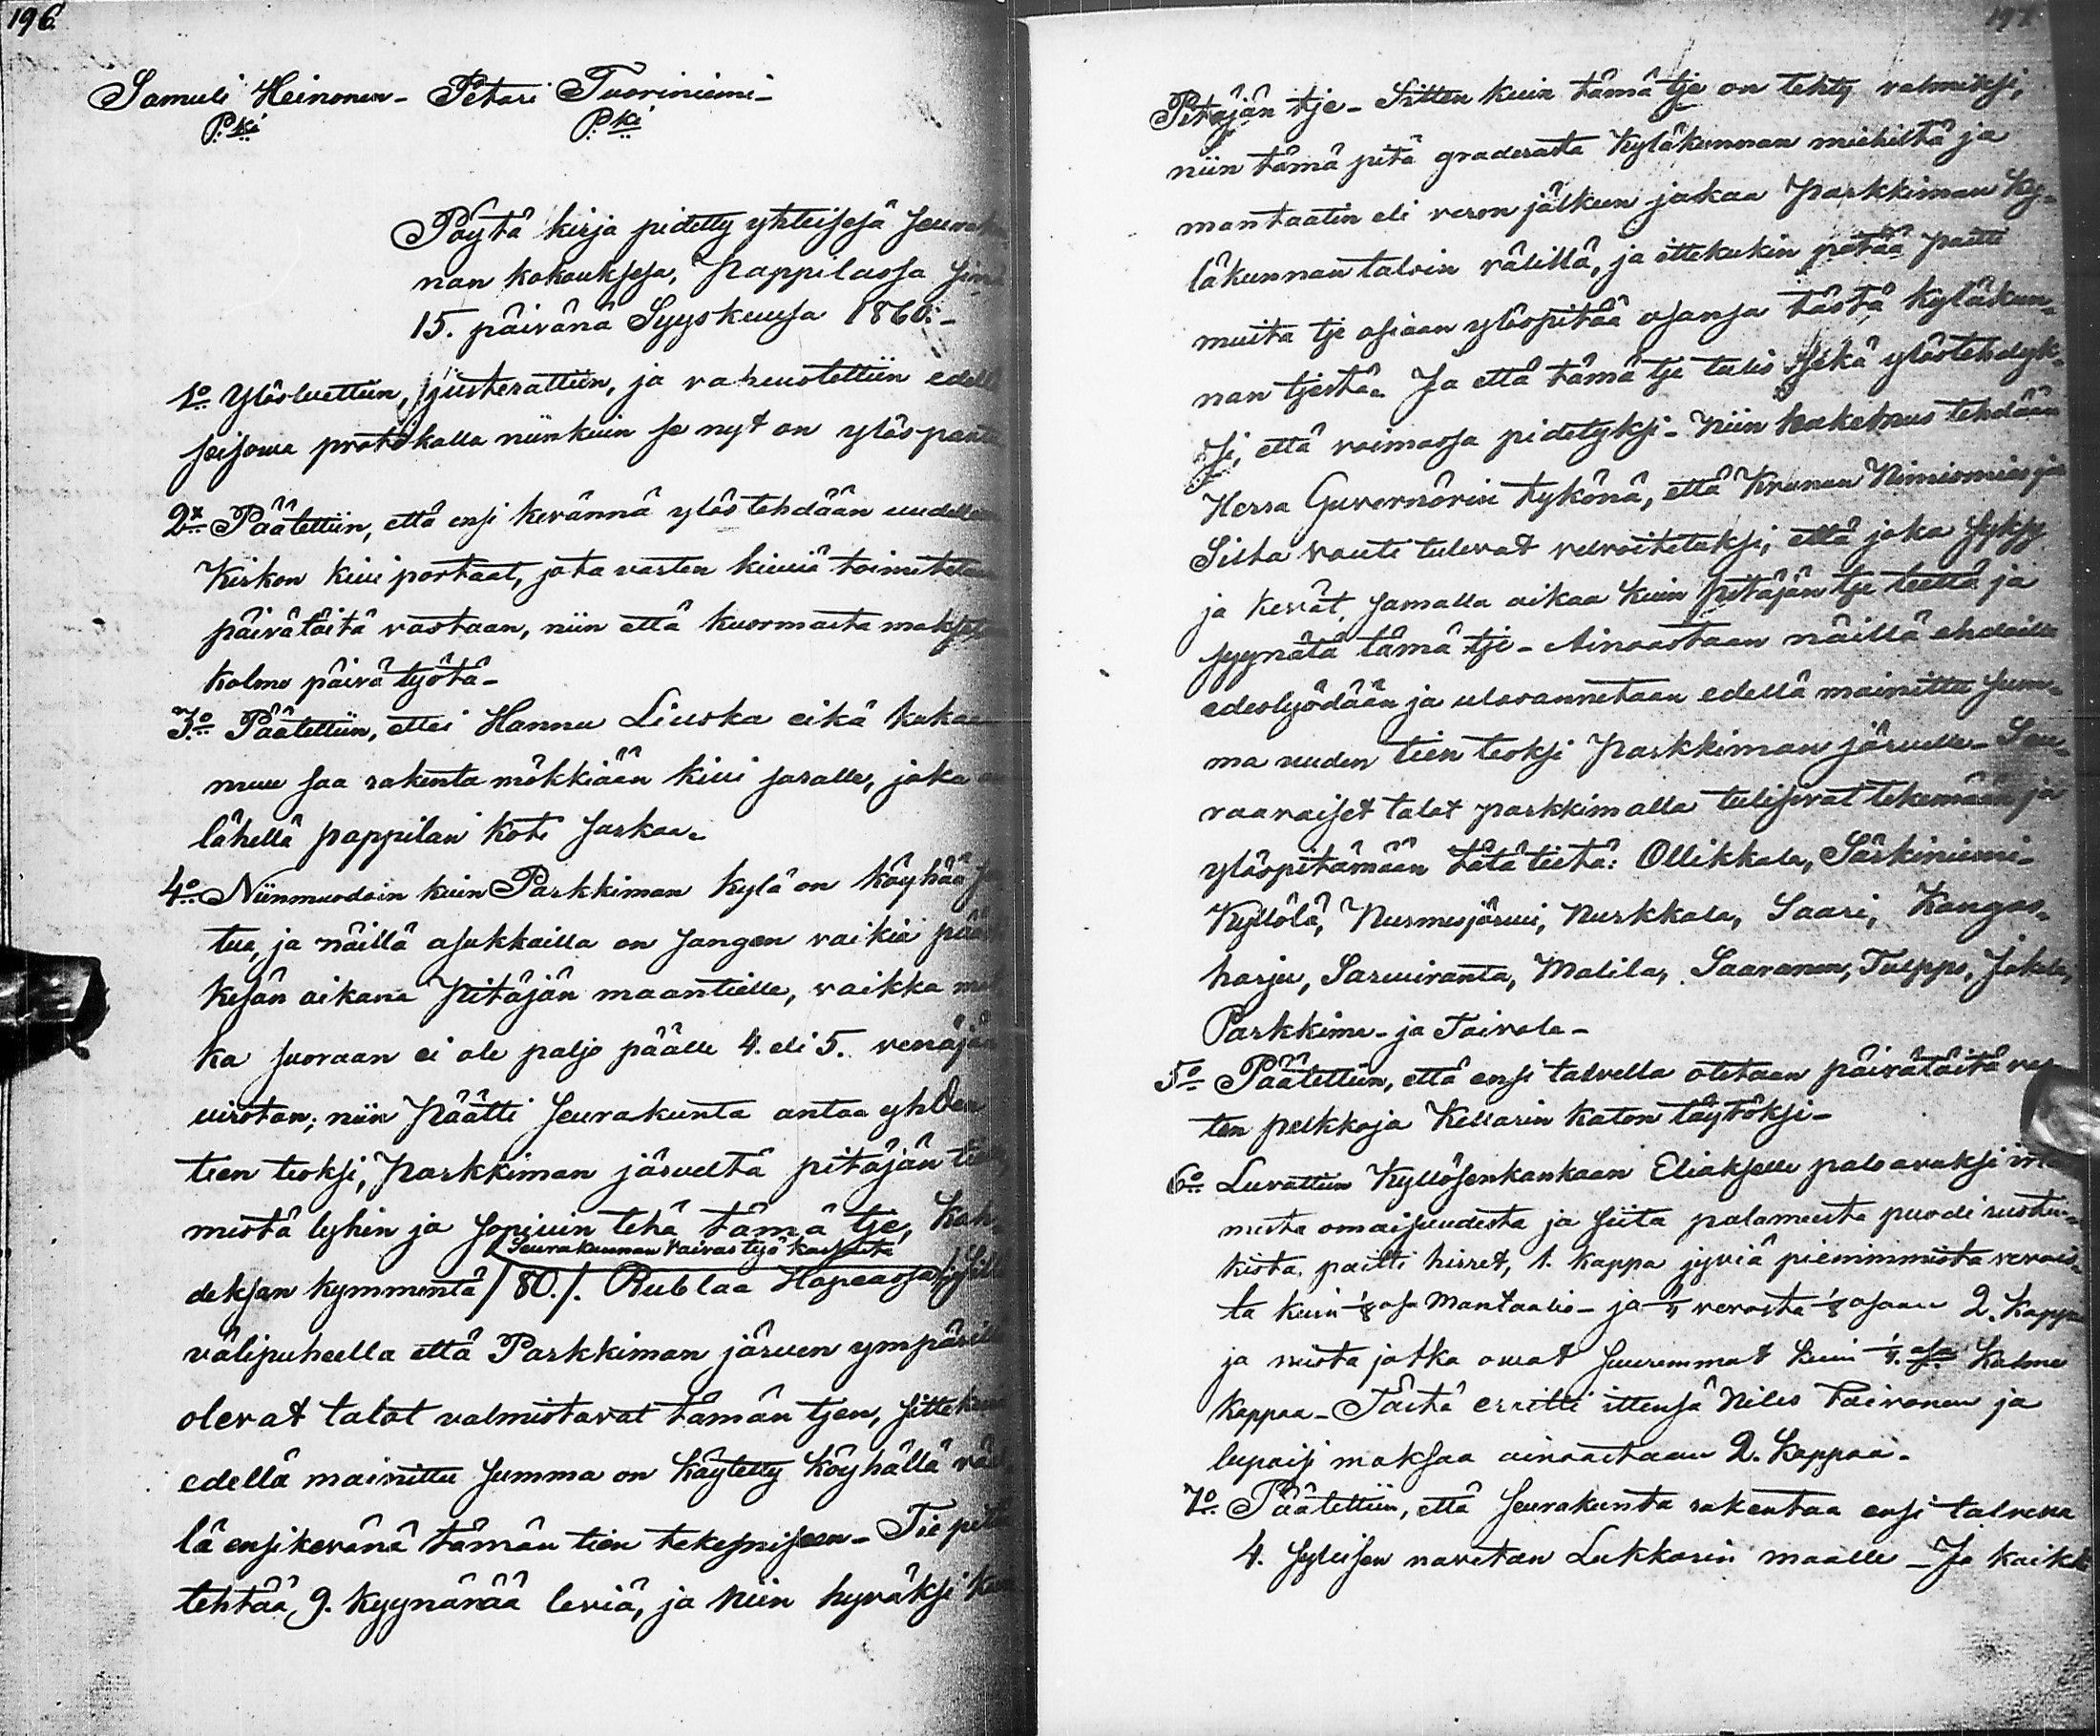 196
Samuli Heinonen - Petari Tuoriniemi -
P:ki P:ki
Pöytä kirja pidetty yhteisesä seurakun
nan kokouksesa, Pappilassa sinä
15. päivänä Syyskuusa 1860:-
1o Ylösluettiin, justerattiin, ja vahvustettiin edellä
seisowa protokolla niinkuin se nyt on ylöspantu
2x Päätettiin, että ensi kevännä ylös tehdään uudellen
Kirkon kivi portaat, jota vasten kiviä toimitetaan
päivätöitä vastaan, niin että kuormasta maksetaan
kolme päivä työtä -
3o Päätettiin, ettei Hannu Liuska eikä kukaan
muu saa rakenta mökkiään kivi saralle, joka on
lähellä pappilan koti sarkaa.
4o Niinmuodoin kuin Parkkiman kylä on köyhää
tua, ja näillä asukkailla on sangen vaikia päästä
kesän aikana Pitäjän maantielle, vaikka mat
ka suoraan ei ole paljo päälle 4. eli 5. venäjän
virstan; niin Päätti seurakunta antaa yhden
tien teoksi, Parkkiman järveltä pitäjän tielle
mistä lyhin ja sopivin tehä tämä tje, Kah
Seurakunnan Vaivas työ kassasta
deksan kymmentä /80./. Rublaa Hopeassa sillä
välipuheella että Parkkiman järven ympärillä
olevat talot valmistavat tämän tjen, sittekuin
edellä mainittu summa on käytetty köyhällä väel
lä ensikevänä tämän tien tekemiseen - Tie pitä
tehtää 9. kyynärää leviä, ja niin hyväksi kuin
197
Pitäjän tje - Sitten kuin tämä tje on tehty valmiiksi,
niin tämä pitä graderata Kyläkunnan miehiltä ja
mantaatin eli veron jälkeen jakaa Parkkiman Ky-
läkunnan taloin välillä, ja ittekukin pitää paitti
muita tje osiaan ylöspitää osansa tästä kyläkun-
nan tjestä. Ja että tämä tje tulis sekä ylöstehdyk-
si, että voimassa pidetyksi - Niin hakemus tehdään
Herra Guvernörin tykönä, että Krunun Nimismies ja
Silta vouti tulevat velvoitetuksi, että joka syksy
ja kevät, samalla aikaa kuin pitäjän tje teettä ja
syynätä tämä tje - Ainoastaan näillä ehdoilla
edeslyödään ja ulosannetaan edellä mainittu sum-
ma uuden tien teoksi Parkkiman järvelle - Seu-
raavaiset talot parkkimalla tulisivat tekemään ja
ylöspitämään tätä tietä: Ollikkala, Särkiniemi -
Kyllölä, Nurmesjärvi, Nurkkala, Saari, Kangas-
harju, Sarvivanta, Malila, Saaranen, Tulppo, Jokela,
Parkkima - ja Taivala -
5o Päätettiin, että ensi talvella otetaan päivätöitä vas
ten pelkkoja Kellarin katon täytöksi -
6o Luvattiin Kyllösenkankaan Eliakselle paloavuksi irta
mesta omaisuudesta ja siita palaneesta puodi
kista, paitti hirret, 1. kappa jyviä pienimmistä verois
ta kuin 1/8 osa Mantaalis - ja verosta 1/8 osaan 2. Kappa
ja niista jotka ovat suuremmat kuin 1/4. osa Kolme
kappaa - Tästä erritti ittensä Nilus Toivonen ja
lupaisi maksaa ainoastaan 2. Kappaa.
7o Päätettiin, että seurakunta rakentaa ensi talvena
4. syleisen navetan Lukkarin maalle - Ja kaikk